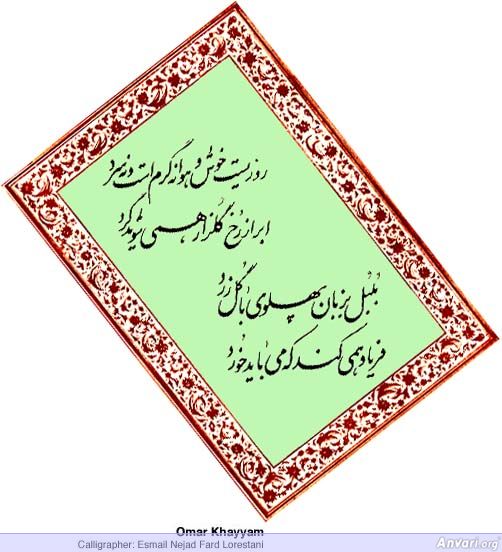 روزیست خوش و هوا نه گرم است و نه سرد
ابر از رخ گلزار همی شوید گرد
بلبل بزبان پهلوی با گل زرد
فریاد همی کند که می باید خورد
Omar Khayyam
Calligrapher: Esmail Nejad Fard Lorestani
Anvari.org